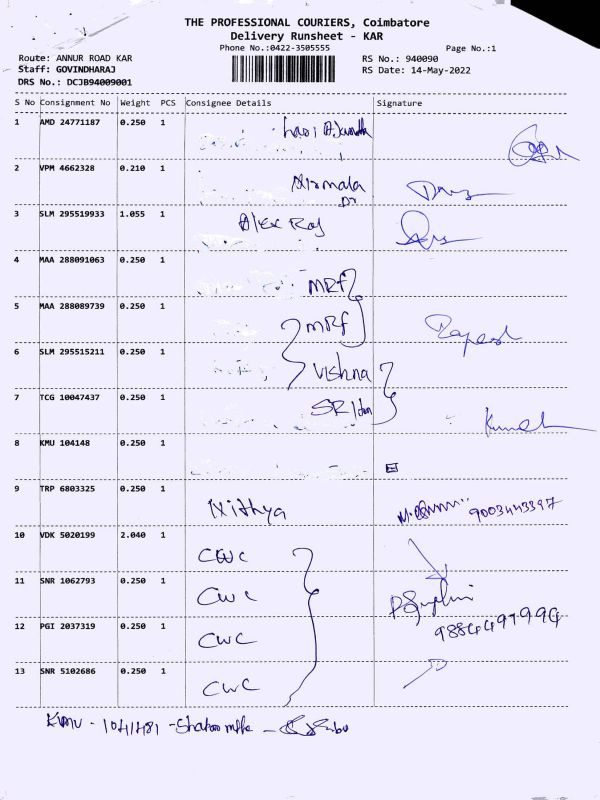 THE PROFESSIONAL COURIERS, Coimbatore
Delivery Runsheet - KAR
Phone No.:0422-3505555
Page No.:1
Route: ANNUR ROAD KAR
Staff: GOVINDHARAJ
DRS No.: DCJB94009001
RS No.: 940090
RS Date: 14-May-2022
S No Consignment No Weight PCS Consignee Details Signature
1 AMD 24771187 0.250 1
2 VPM 4662328 0.210 1 Nirmala
3 SLM 295519933 1.055 1 Alex Raj
4 MAA 288091063 0.250 1 MRF
5 MAA 288089739 0.250 1 MRF Rajesh
6 SLM 295515211 0.250 1 Vishna
7 TCG 10047437 0.250 1
8 KMU 104148 0.250 1
9 TRP 6803325 0.250 1 Nithya 9003443397
10 VDK 5020199 2.040 1 CWC
11 SNR 1062793 0.250 1 CWC
12 PGI 2037319 0.250 1 CWC
13 SNR 5102686 0.250 1 CWC
KMU -